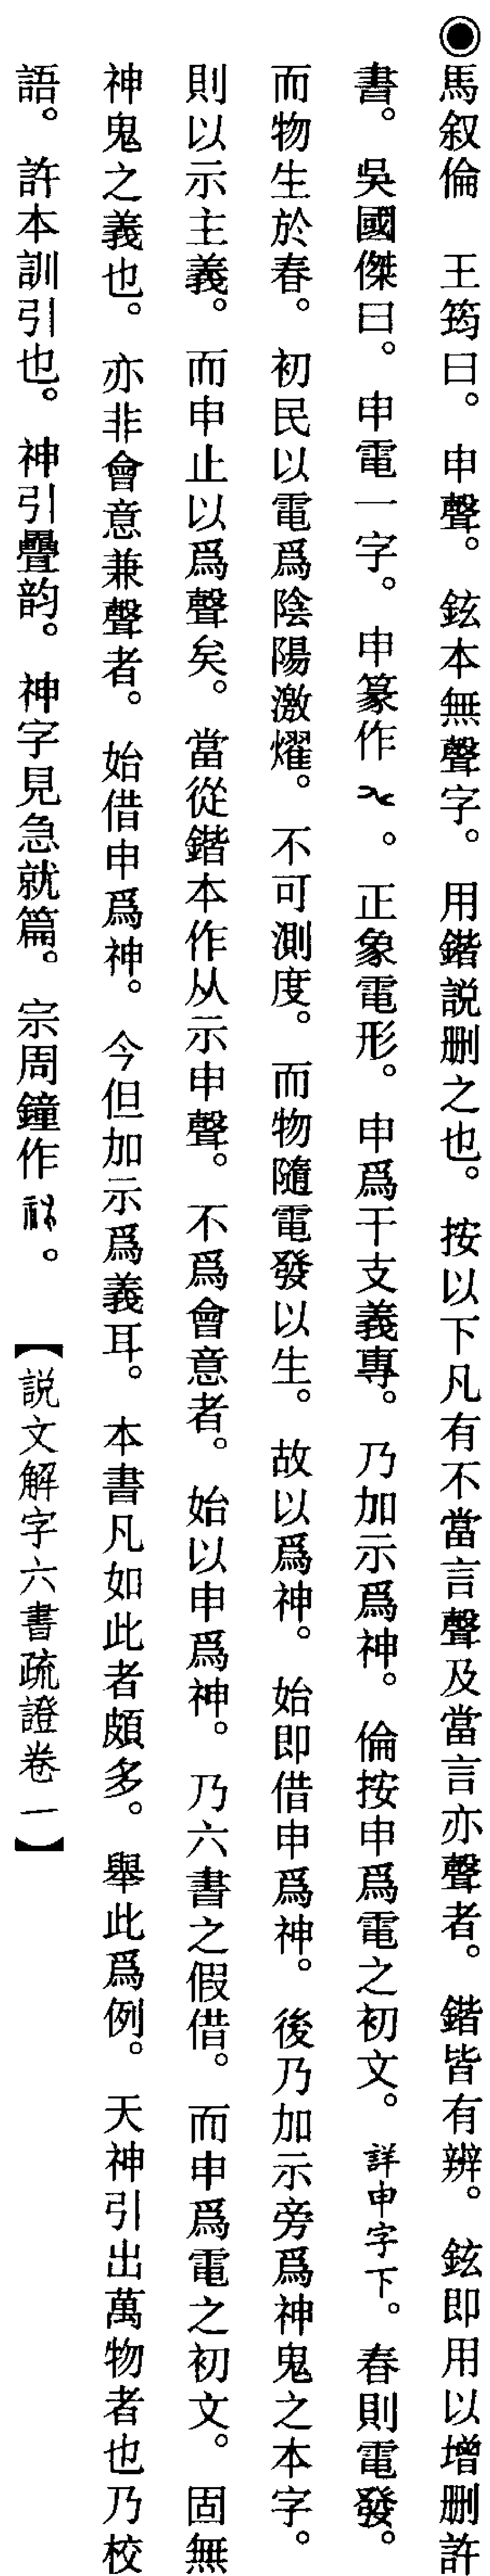 ◉馬叙倫　王筠曰。申聲。鉉本無聲字。用鍇説删之也。按以下凡有不當言聲及當言亦聲者。鍇皆有辨。鉉即用以增删許
書。吳國傑曰。申電一字。申篆作。正象電形。申爲干支義專。乃加示爲神。倫按申爲電之初文。詳申字下。春則電發。
而物生於春。初民以電爲陰陽激燿。不可測度。而物隨電發以生。故以爲神。始即借申爲神。後乃加示旁爲神鬼之本字。
則以示主義。而申止以爲聲矣。當從鍇本作从示申聲。不爲會意者。始以申爲神。乃六書之假借。而申爲電之初文。固無
神鬼之義也。亦非會意兼聲者。始借申爲神。今但加示爲義耳。本書凡如此者頗多。舉此爲例。天神引出萬物者也乃校
語。許本訓引也。神引疊韵。神字見急就篇。宗周鐘作。【説文解字六書疏證卷一】